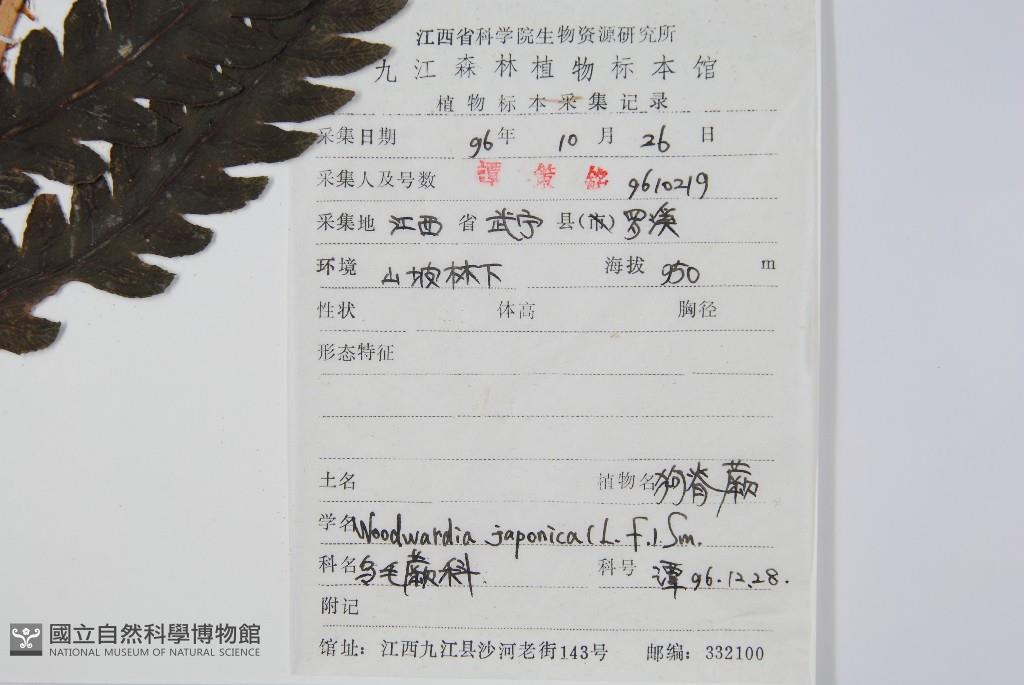 江西省科学院生物资源研究所
九江森林植物标本馆
植物标本采集记录
采集日期 96年 10月 26日
采集人及号数 譚策铭 9610219
采集地 江西省 武宁县(市) 罗溪
环境 山坡林下 海拔 950 m
性状 体高 胸径
形态特征
土名 植物名 狗脊蕨
学名 Woodwardia japonica (L. f.) Sm.
科名 乌毛蕨科 科号 潭 96.12.28.
附记
馆址：江西九江县沙河老街143号 邮编：332100
國立自然科學博物館
NATIONAL MUSEUM OF NATURAL SCIENCE